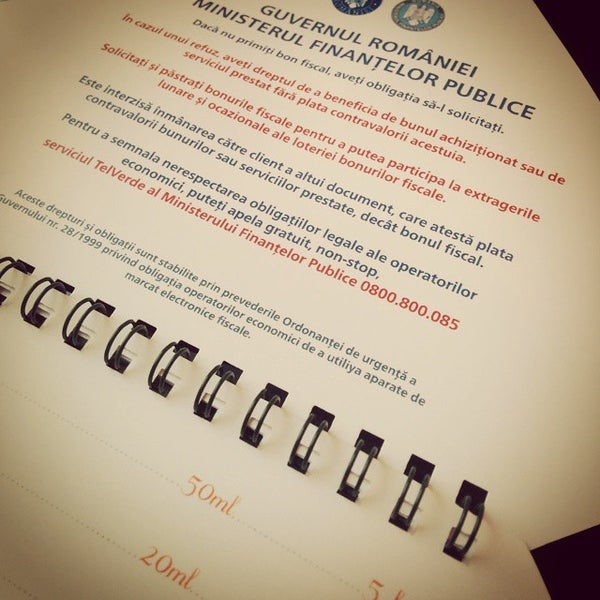 GUVERNUL ROMÂNIEI
MINISTERUL FINANȚELOR PUBLICE
Dacă nu primiți bon fiscal, aveți obligația să-l solicitați.
În cazul unui refuz, aveți dreptul de a beneficia de bunul achiziționat sau de
serviciul prestat fără plata contravalorii acestuia.
Solicitați și păstrați bonurile fiscale pentru a putea participa la extragerile
lunare și ocazionale ale loteriei bonurilor fiscale.
Este interzisă înmânarea către client a altui document, care atestă plata
contravalorii bunurilor sau serviciilor prestate, decât bonul fiscal.
Pentru a semnala nerespectarea obligațiilor legale ale operatorilor
economici, puteți apela gratuit, non-stop,
serviciul TelVerde al Ministerului Finanțelor Publice 0800.800.085
Aceste drepturi și obligații sunt stabilite prin prevederile Ordonanței de urgență a
Guvernului nr. 28/1999 privind obligația operatorilor economici de a utiliya aparate de
marcat electronice fiscale.
50ml
20ml